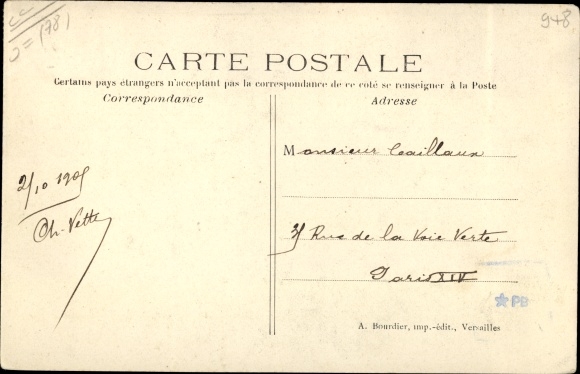 (78)
948
CARTE POSTALE
Certains pays étrangers n'acceptant pas la correspondance de ce coté se renseigner à la Poste
Correspondance
Adresse
Monsieur Caillaux
2/10 1905
Ch. Vette
31 Rue de la Voie Verte
Paris XIV
PB
A. Bourdier, imp.-édit., Versailles